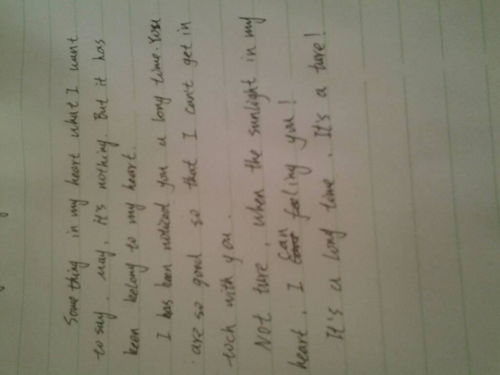 Some thing in my heart what I want
to say. May, it's nothing. But it has
been belong to my heart.
I has been noticed you a long time. You
are so good so that I can't get in
toch with you.
Not ture, when the sunlight in my
heart, I can feeling you!
It's a long time. It's a ture!